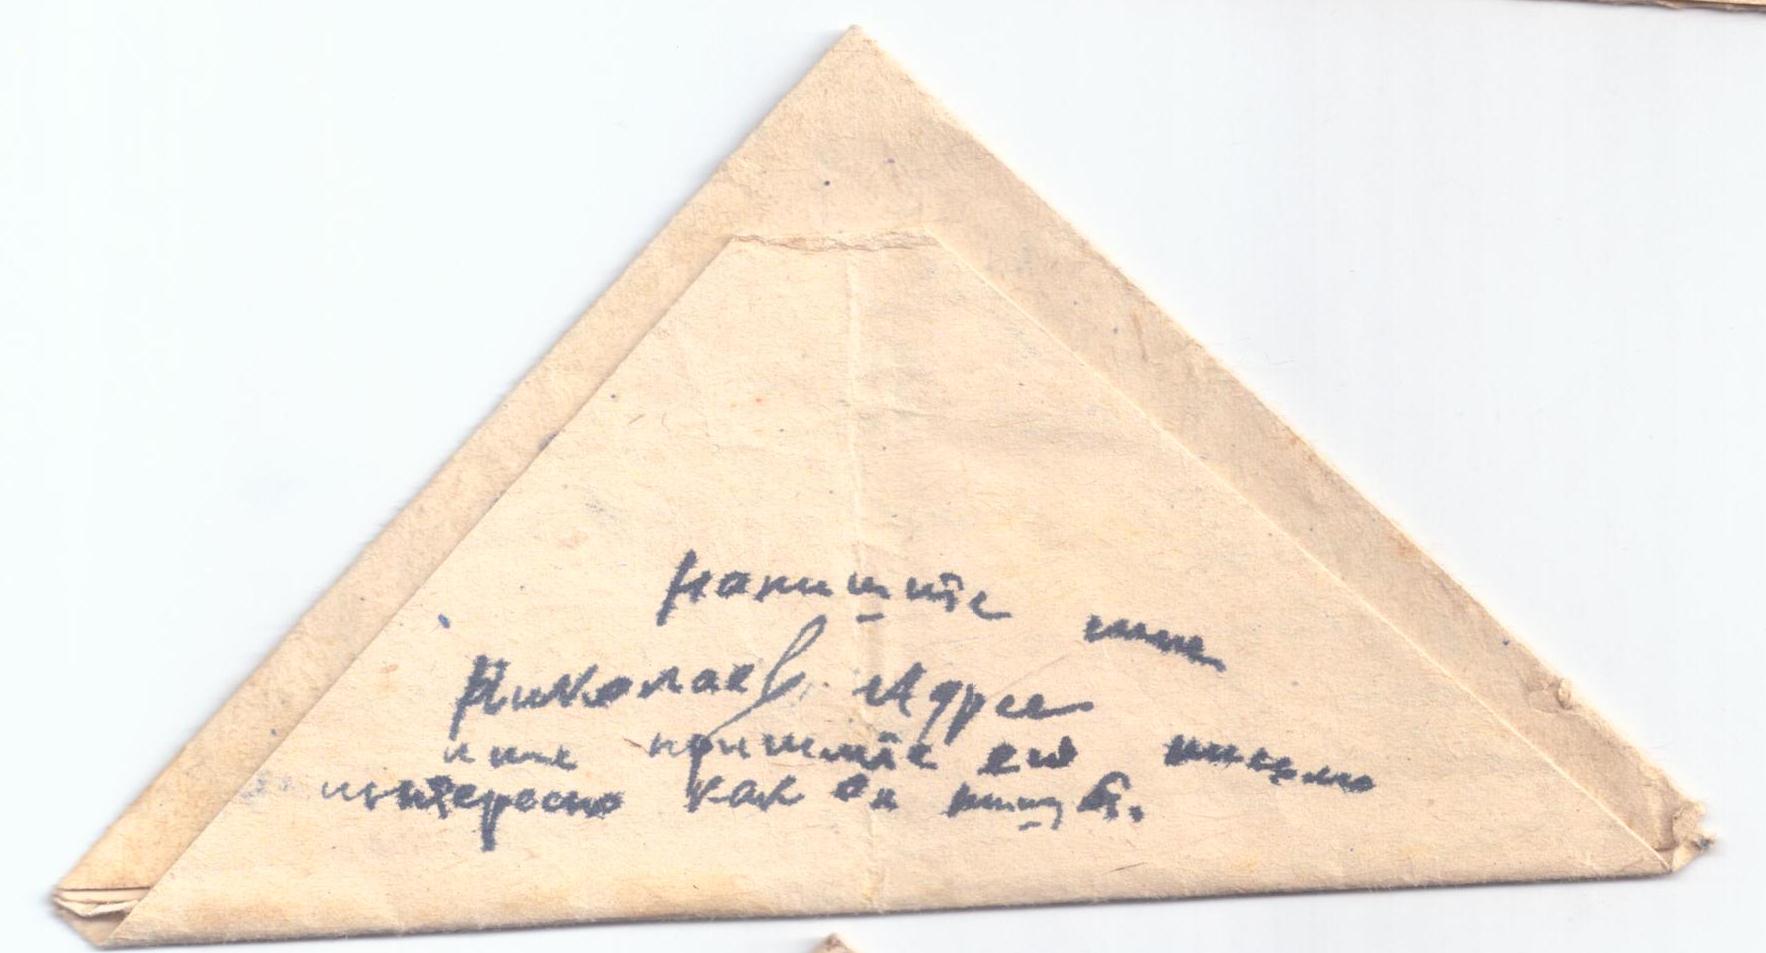 напишите мне
Николаев Адрес
или пришлите его письмо
интересно как он пишет.